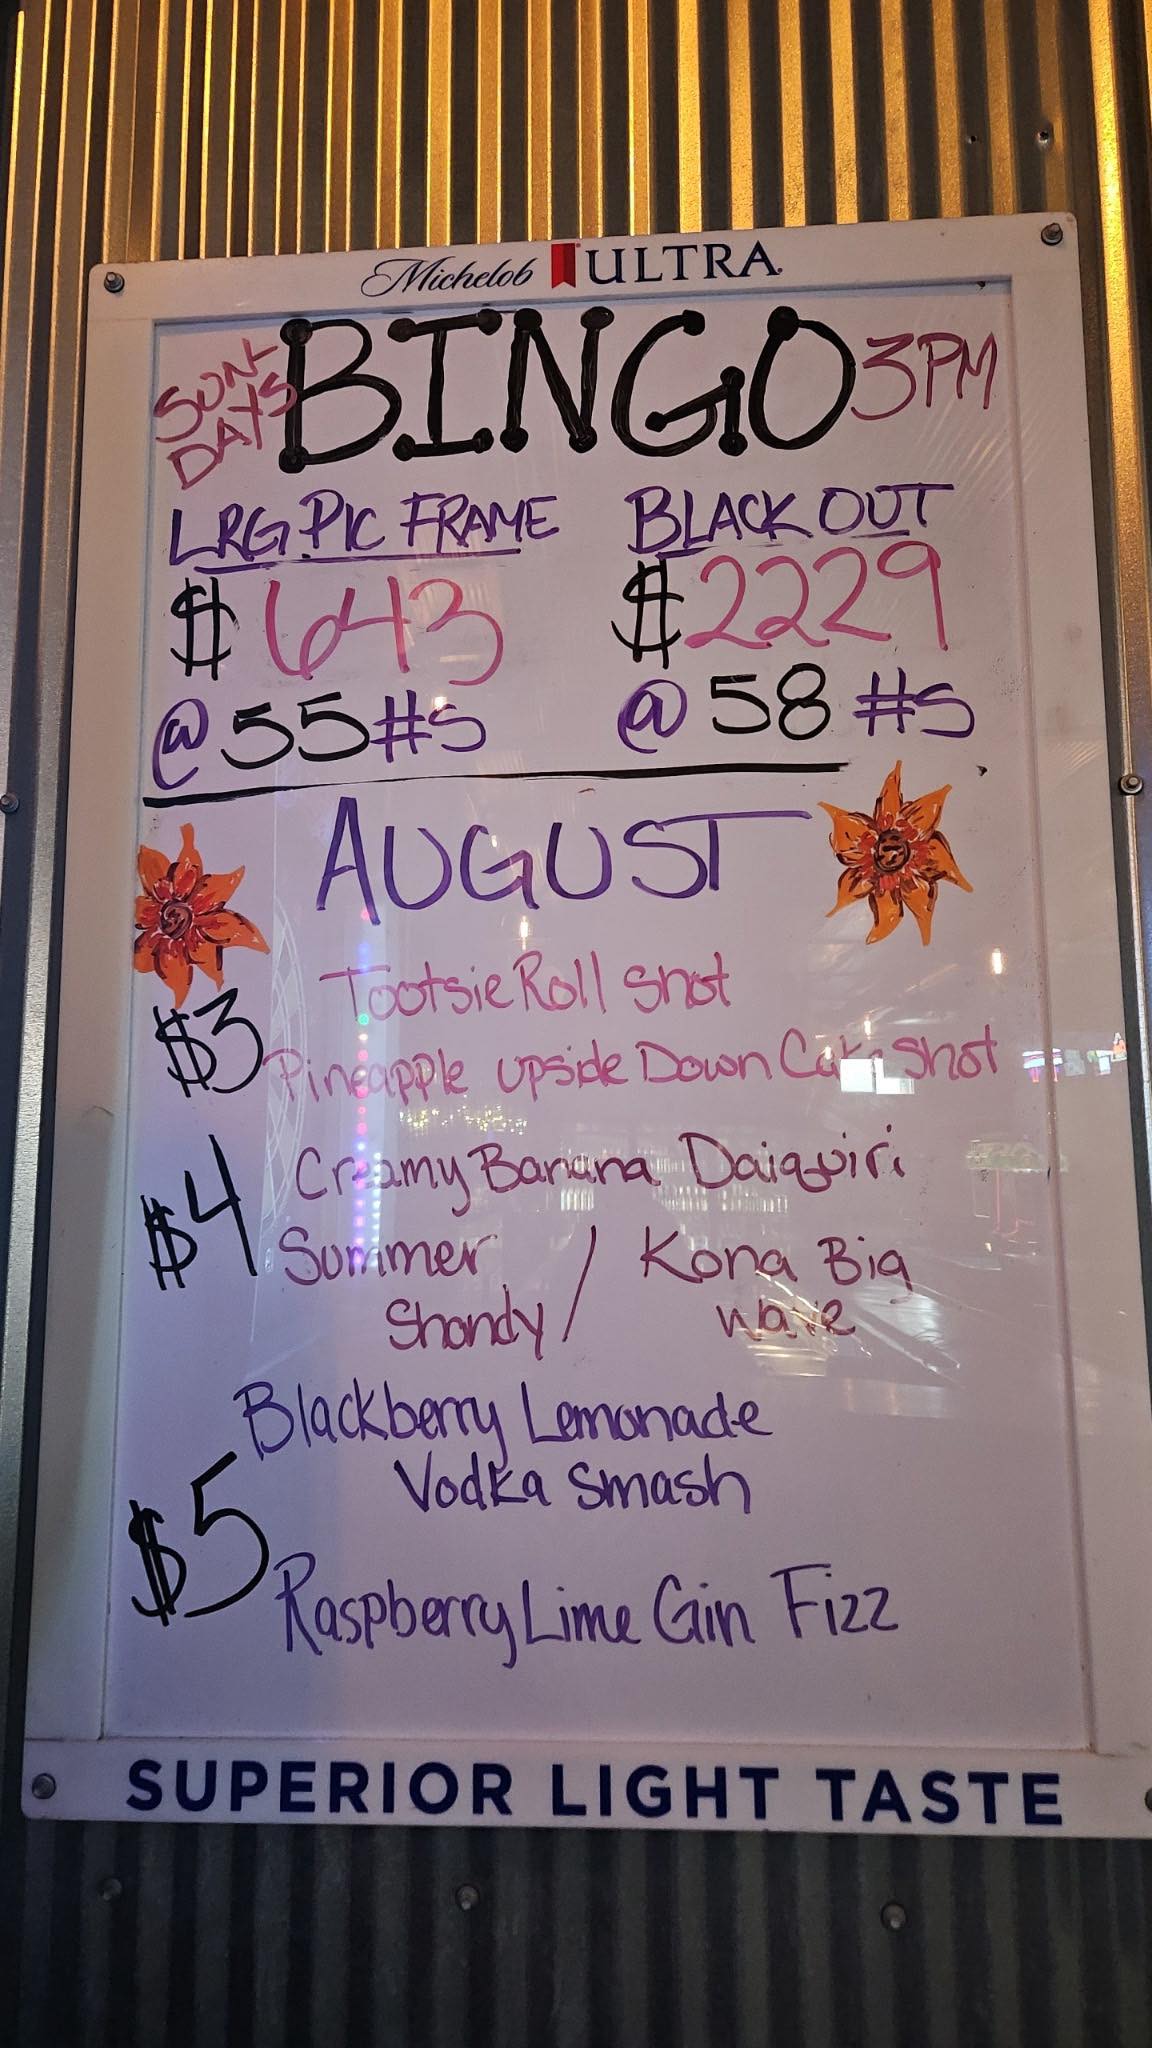 Michelob ULTRA
SUN-
DAYS
BINGO 3PM
LRG PIC FRAME
$643
@ 55 #s
BLACK OUT
$2229
@ 58 #s
AUGUST
$3
Tootsie Roll Shot
Pineapple Upside Down Cake Shot
$4
Creamy Banana Daiquiri
Summer
Shandy /
Kona Big
Wave
$5
Blackberry Lemonade
Vodka Smash
Raspberry Lime Gin Fizz
SUPERIOR LIGHT TASTE